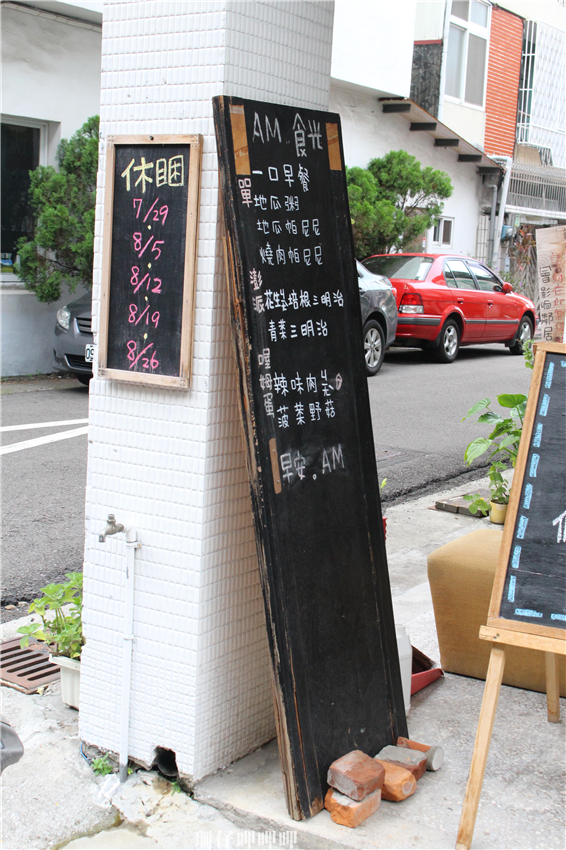 休睏
7/29
8/5
8/12
8/19
8/26
AM 食光
單
一口早餐
地瓜粥
地瓜帕尼尼
燒肉帕尼尼
澎派
花生培根三明治
青菜三明治
喔姆蛋
辣味肉
菠菜野菇
早安。AM